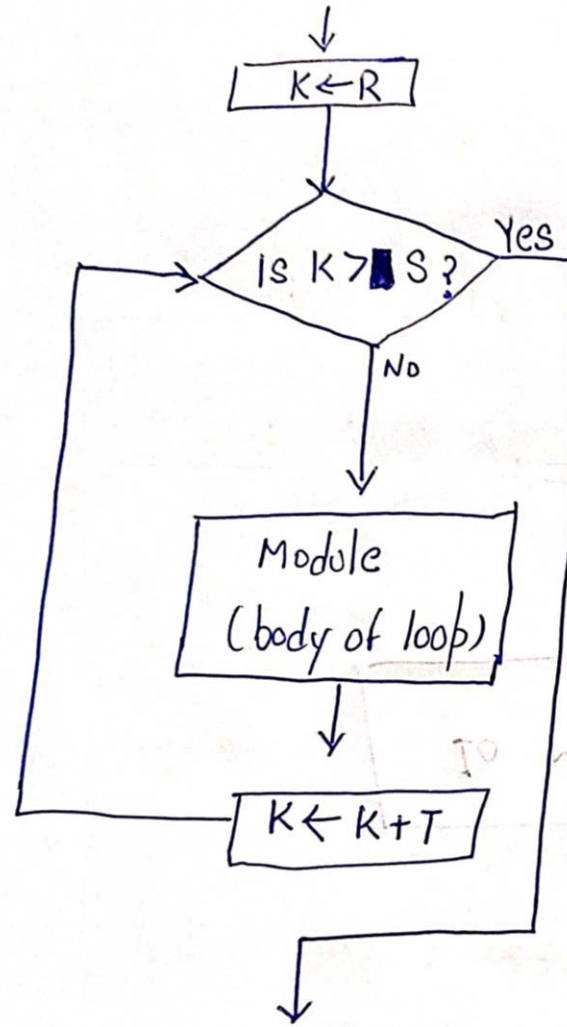 K←R
Is K> S?
Yes
No
Module
(body of loop)
K← K+T